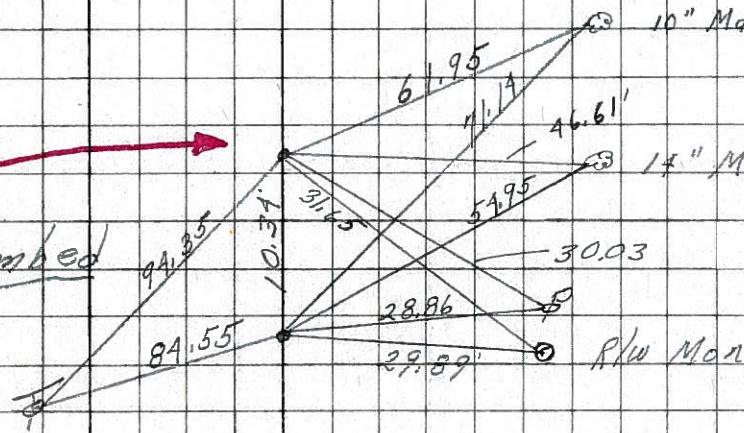 10" Ma
61.95
71.14
46.61'
14" M
54.95
31.65
10.34'
94.35
mbed
30.03
28.86
84.55
29.89'
R/W Mon